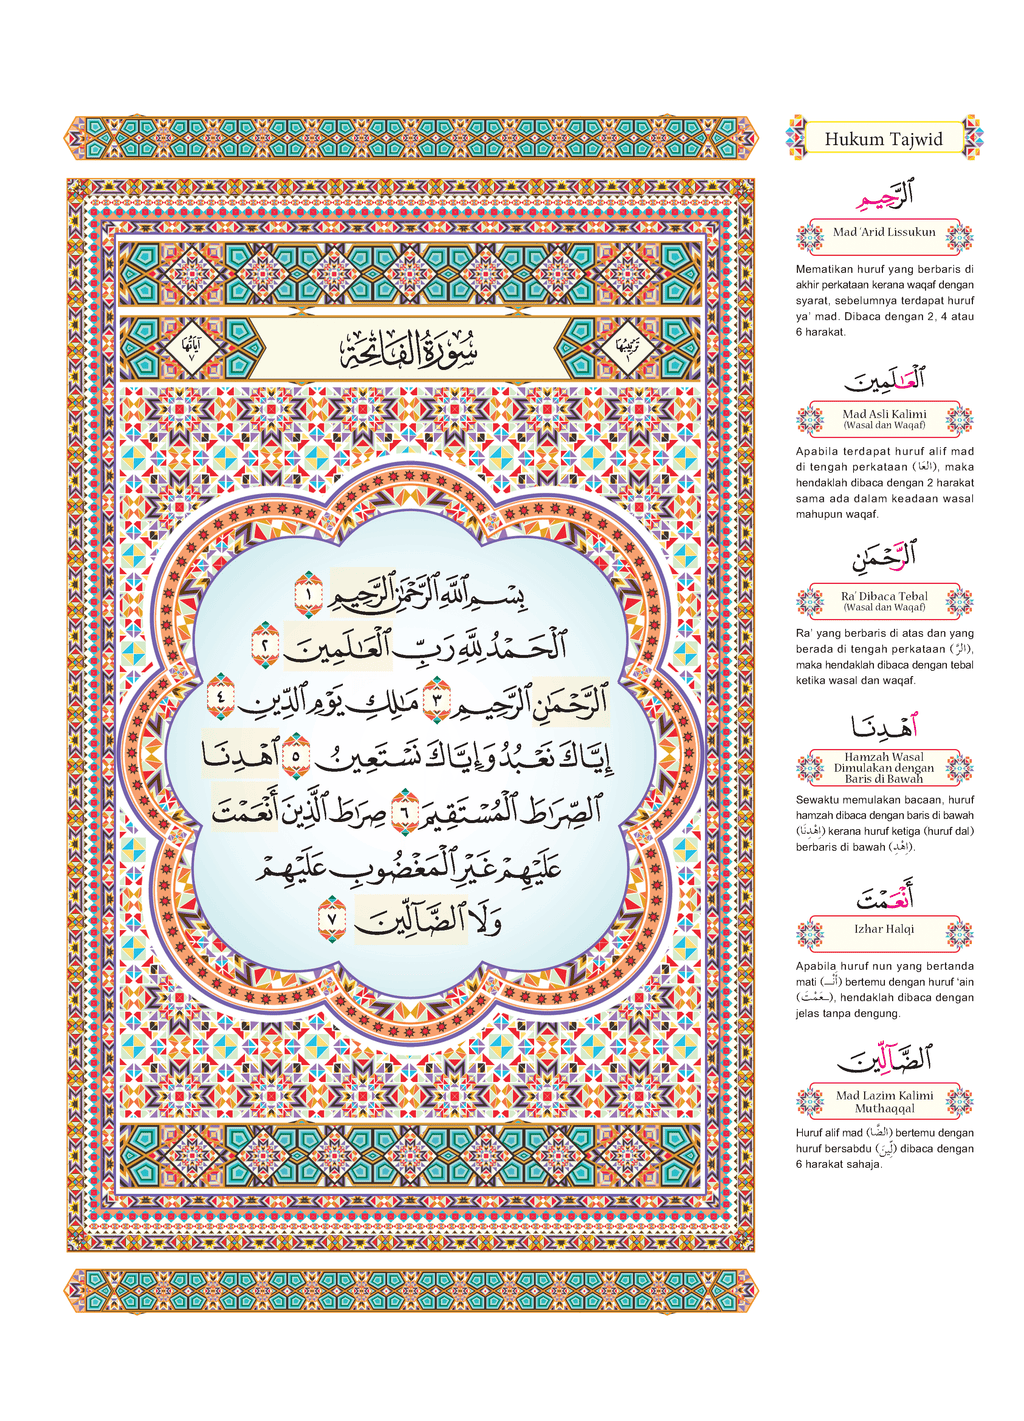 سُورَةُ الْفَاتِحَةِ
تَرْتِيبُهَا ١
آيَاتُهَا ٧
بِسْمِ ٱللَّهِ ٱلرَّحْمَٰنِ ٱلرَّحِيمِ ١
ٱلْحَمْدُ لِلَّهِ رَبِّ ٱلْعَٰلَمِينَ ٢
ٱلرَّحْمَٰنِ ٱلرَّحِيمِ ٣ مَٰلِكِ يَوْمِ ٱلدِّينِ ٤
إِيَّاكَ نَعْبُدُ وَإِيَّاكَ نَسْتَعِينُ ٥ ٱهْدِنَا
ٱلصِّرَٰطَ ٱلْمُسْتَقِيمَ ٦ صِرَٰطَ ٱلَّذِينَ أَنْعَمْتَ
عَلَيْهِمْ غَيْرِ ٱلْمَغْضُوبِ عَلَيْهِمْ
وَلَا ٱلضَّآلِّينَ ٧
Hukum Tajwid
ٱلرَّحِيمِ
Mad 'Arid Lissukun
Mematikan huruf yang berbaris di
akhir perkataan kerana waqaf dengan
syarat, sebelumnya terdapat huruf
ya' mad. Dibaca dengan 2, 4 atau
6 harakat.
ٱلْعَٰلَمِينَ
Mad Asli Kalimi
(Wasal dan Waqaf)
Apabila terdapat huruf alif mad
di tengah perkataan (الْعَا), maka
hendaklah dibaca dengan 2 harakat
sama ada dalam keadaan wasal
mahupun waqaf.
ٱلرَّحْمَٰنِ
Ra' Dibaca Tebal
(Wasal dan Waqaf)
Ra' yang berbaris di atas dan yang
berada di tengah perkataan (الرَّ),
maka hendaklah dibaca dengan tebal
ketika wasal dan waqaf.
ٱهْدِنَا
Hamzah Wasal
Dimulakan dengan
Baris di Bawah
Sewaktu memulakan bacaan, huruf
hamzah dibaca dengan baris di bawah
(اِهْدِنَا) kerana huruf ketiga (huruf dal)
berbaris di bawah (اِهْدِ).
أَنْعَمْتَ
Izhar Halqi
Apabila huruf nun yang bertanda
mati (أَنْـ) bertemu dengan huruf 'ain
(ـعَمْتَ), hendaklah dibaca dengan
jelas tanpa dengung.
ٱلضَّآلِّينَ
Mad Lazim Kalimi
Muthaqqal
Huruf alif mad (الضَّا) bertemu dengan
huruf bersabdu (لِّينَ) dibaca dengan
6 harakat sahaja.